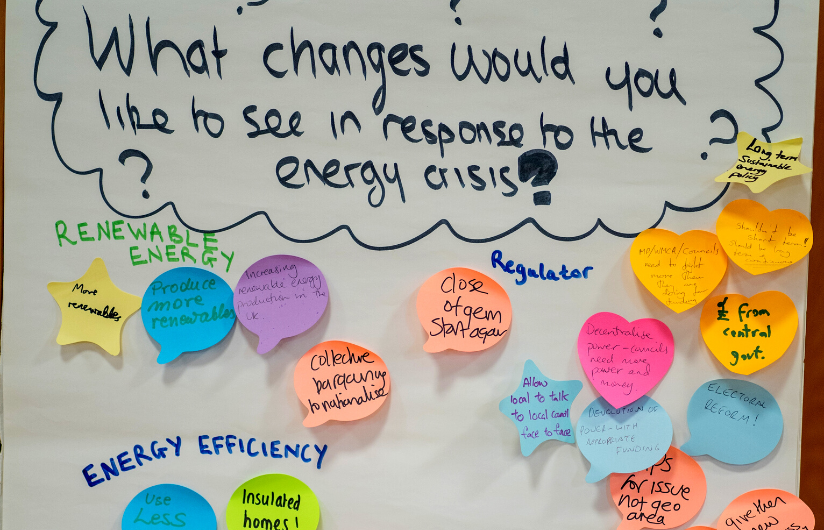 What changes would you
like to see in response to the
energy crisis?
?
?
Long term
Sustainable
energy
policy
RENEWABLE
ENERGY
More
renewables
Produce
more
renewables
Increasing
renewable energy
production in the
UK
Collective
bargaining
to nationalise
Close
ofgem
Start again
Regulator
need to
more
£ from
central
govt.
Decentralise
power - councils
need more
power and
money
Allow
local to talk
to local council
face to face
DEVOLUTION OF
POWER - WITH
APPROPRIATE
FUNDING
ELECTORAL
REFORM!
for issue
not geo
area
give them
ENERGY EFFICIENCY
Use
Less
Insulated
homes!